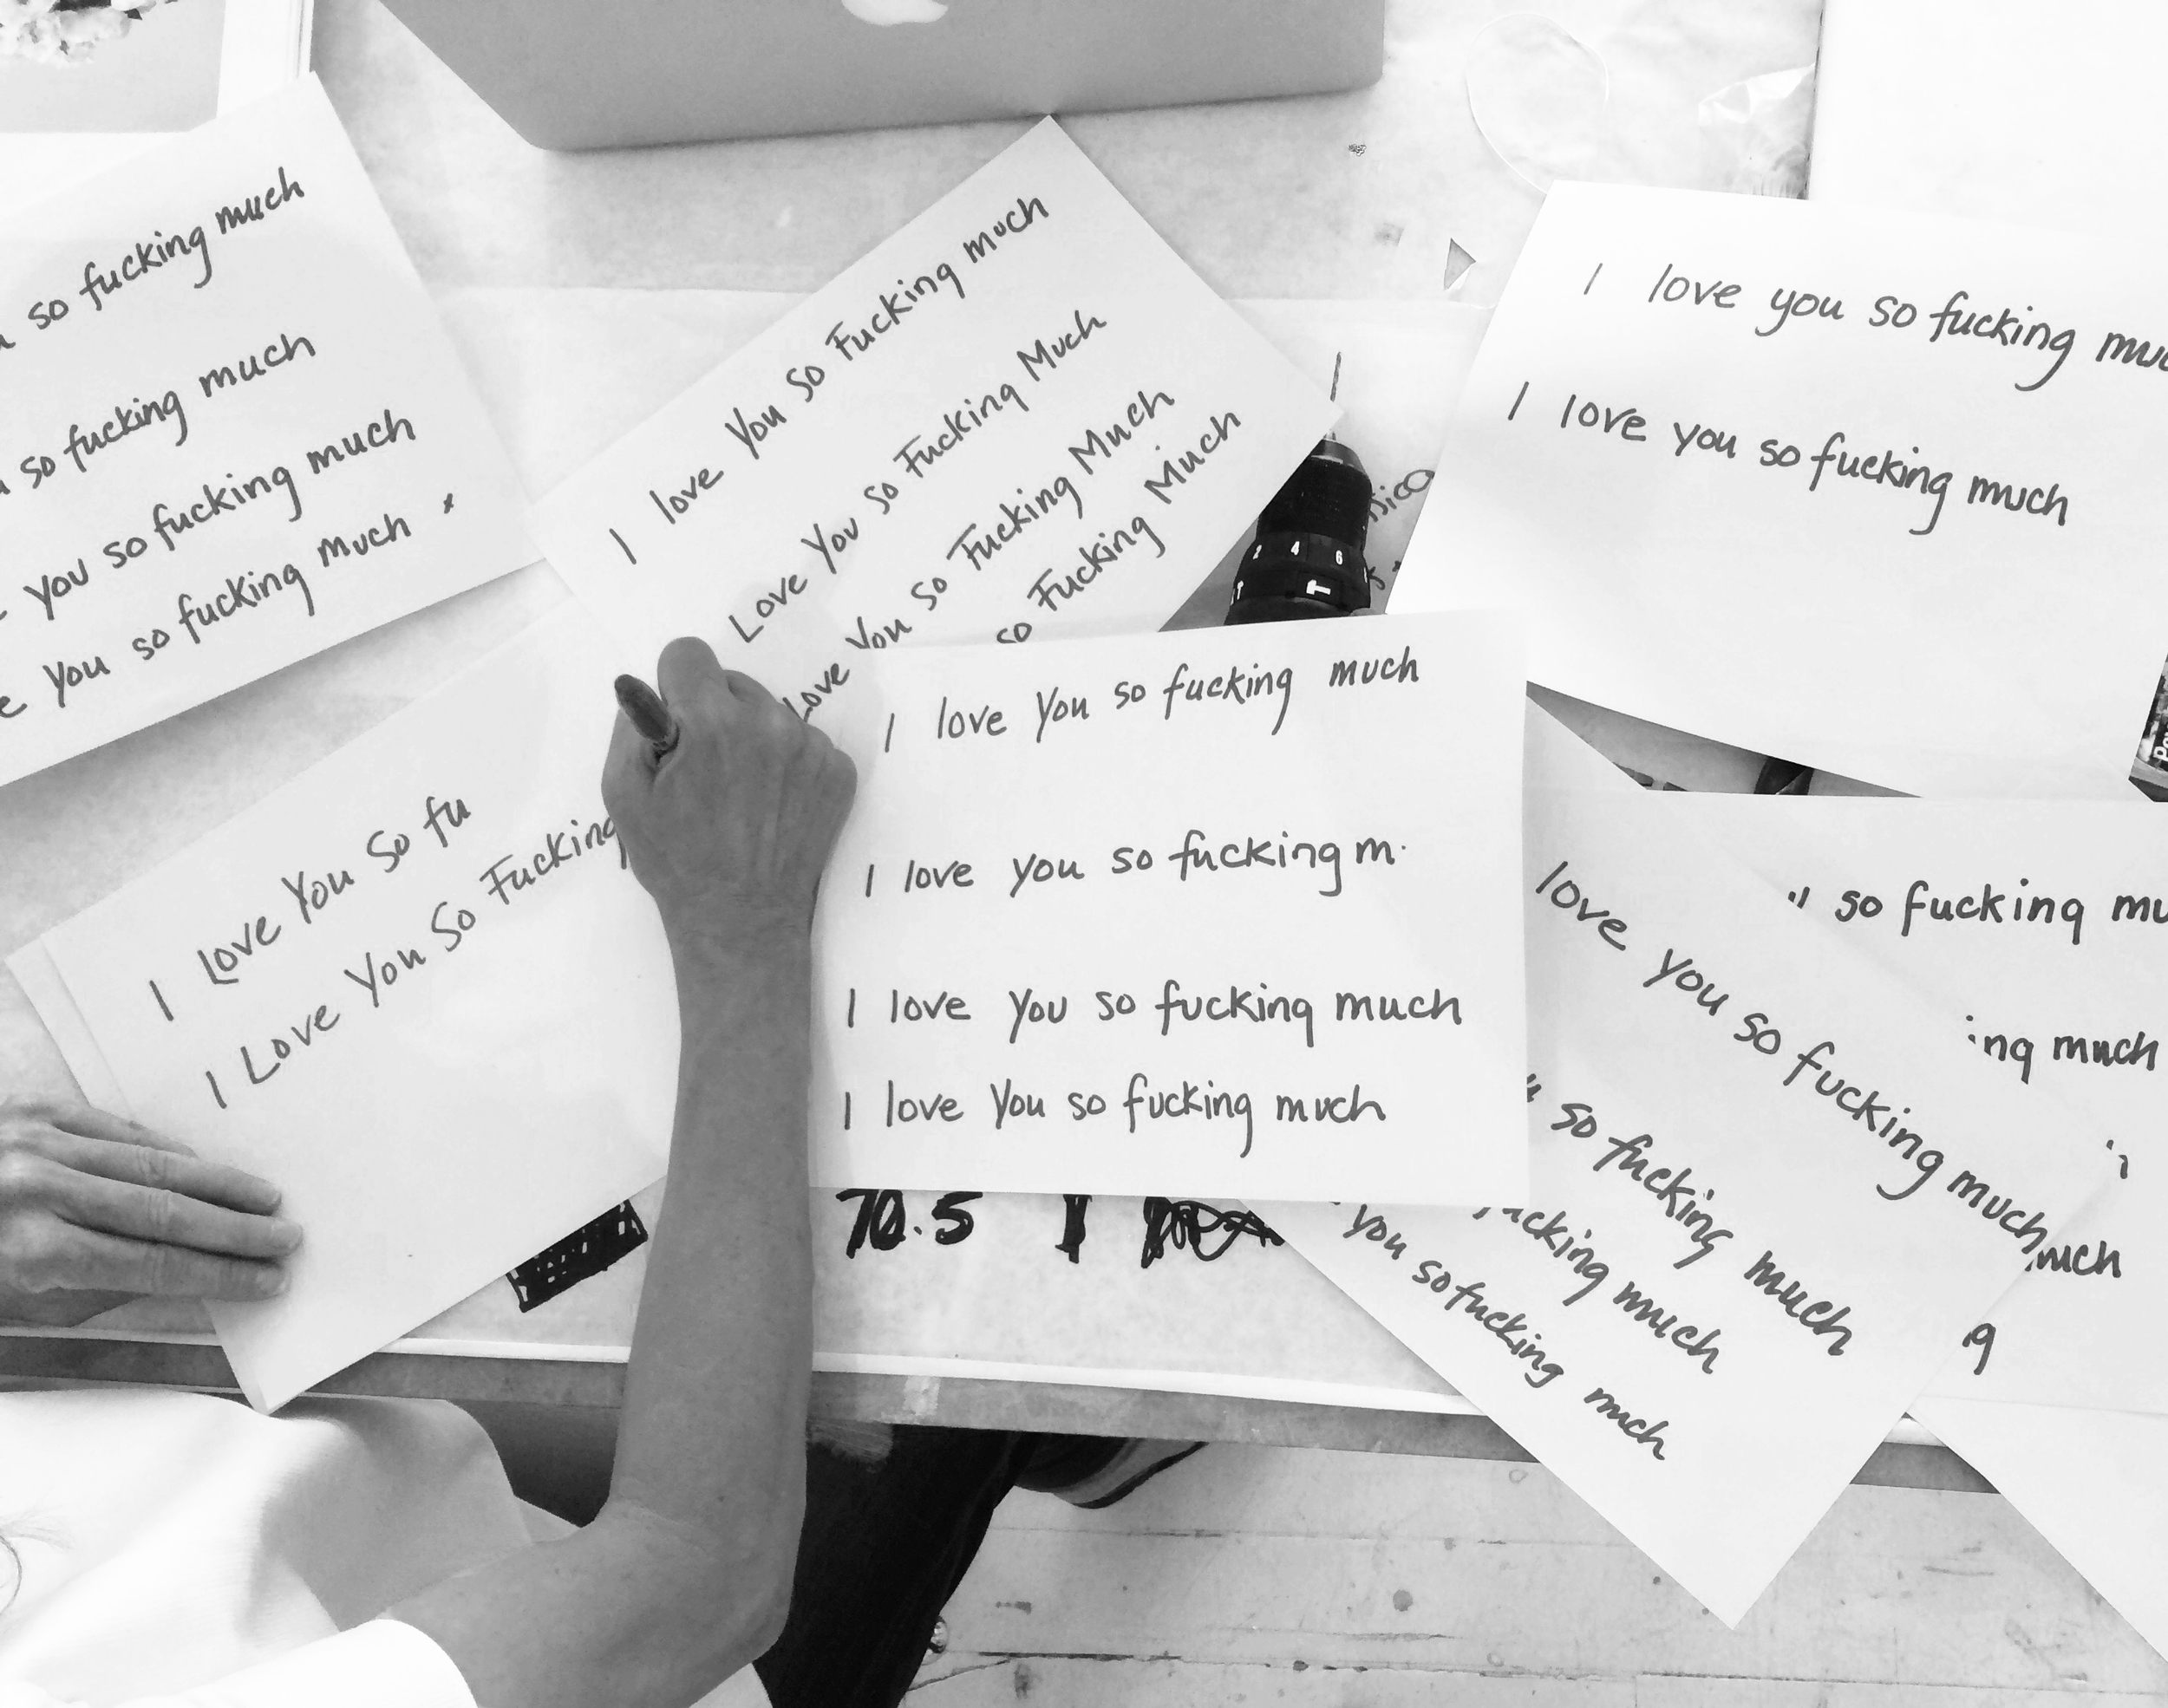 so fucking much
so fucking much
you so fucking much
e You so fucking much
I love You So Fucking much
Love You So Fucking Much
Love You so Fucking Much
so Fucking Much
I love you so fucking muc
I love you so fucking much
2 4 6
I Love You So fu
I Love You So Fucking
I love You so fucking much
I love you so fucking m
I love you so fucking much
I love You so fucking much
70.5
love you so fucking much
so fucking much
ucking much
you so fucking much
so fucking mu
ng much
much
g